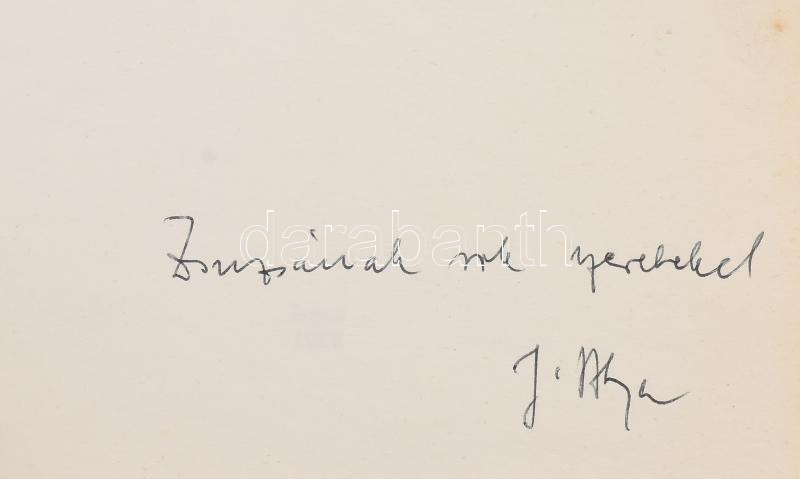 Zsuzsának sok szeretettel
darabanth
J. Atya